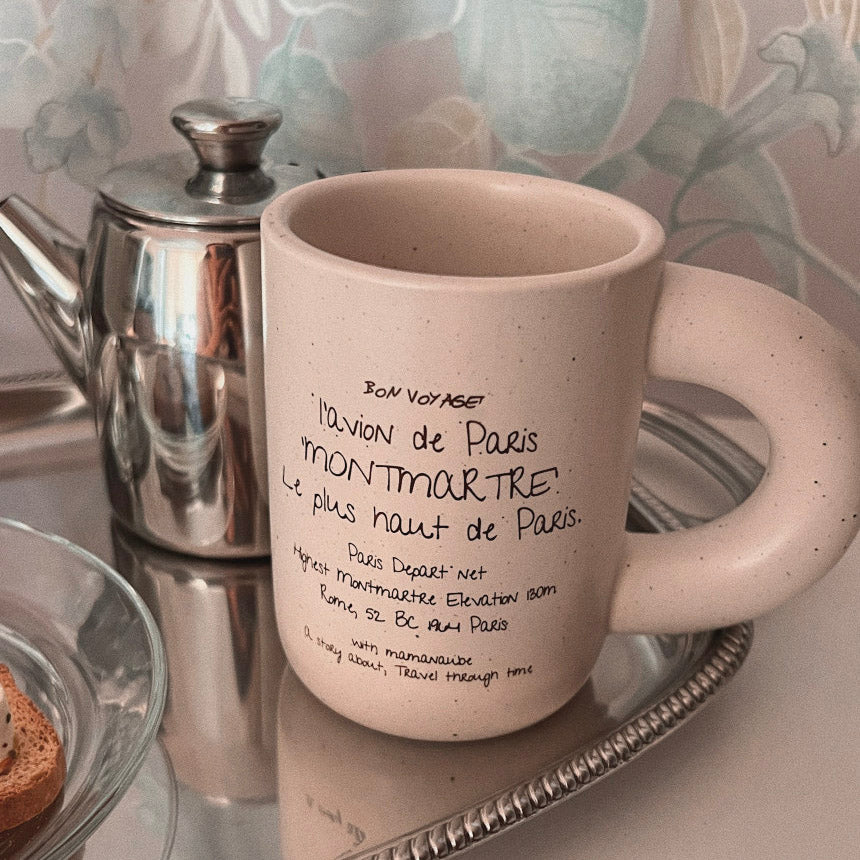 BON VOYAGE
l'avion de Paris
"MONTMARTRE"
Le plus haut de Paris.
Paris Depart Net
Highest Montmartre Elevation 130m
Rome, 52 BC Paris
with mamavaube
a story about, Travel through time